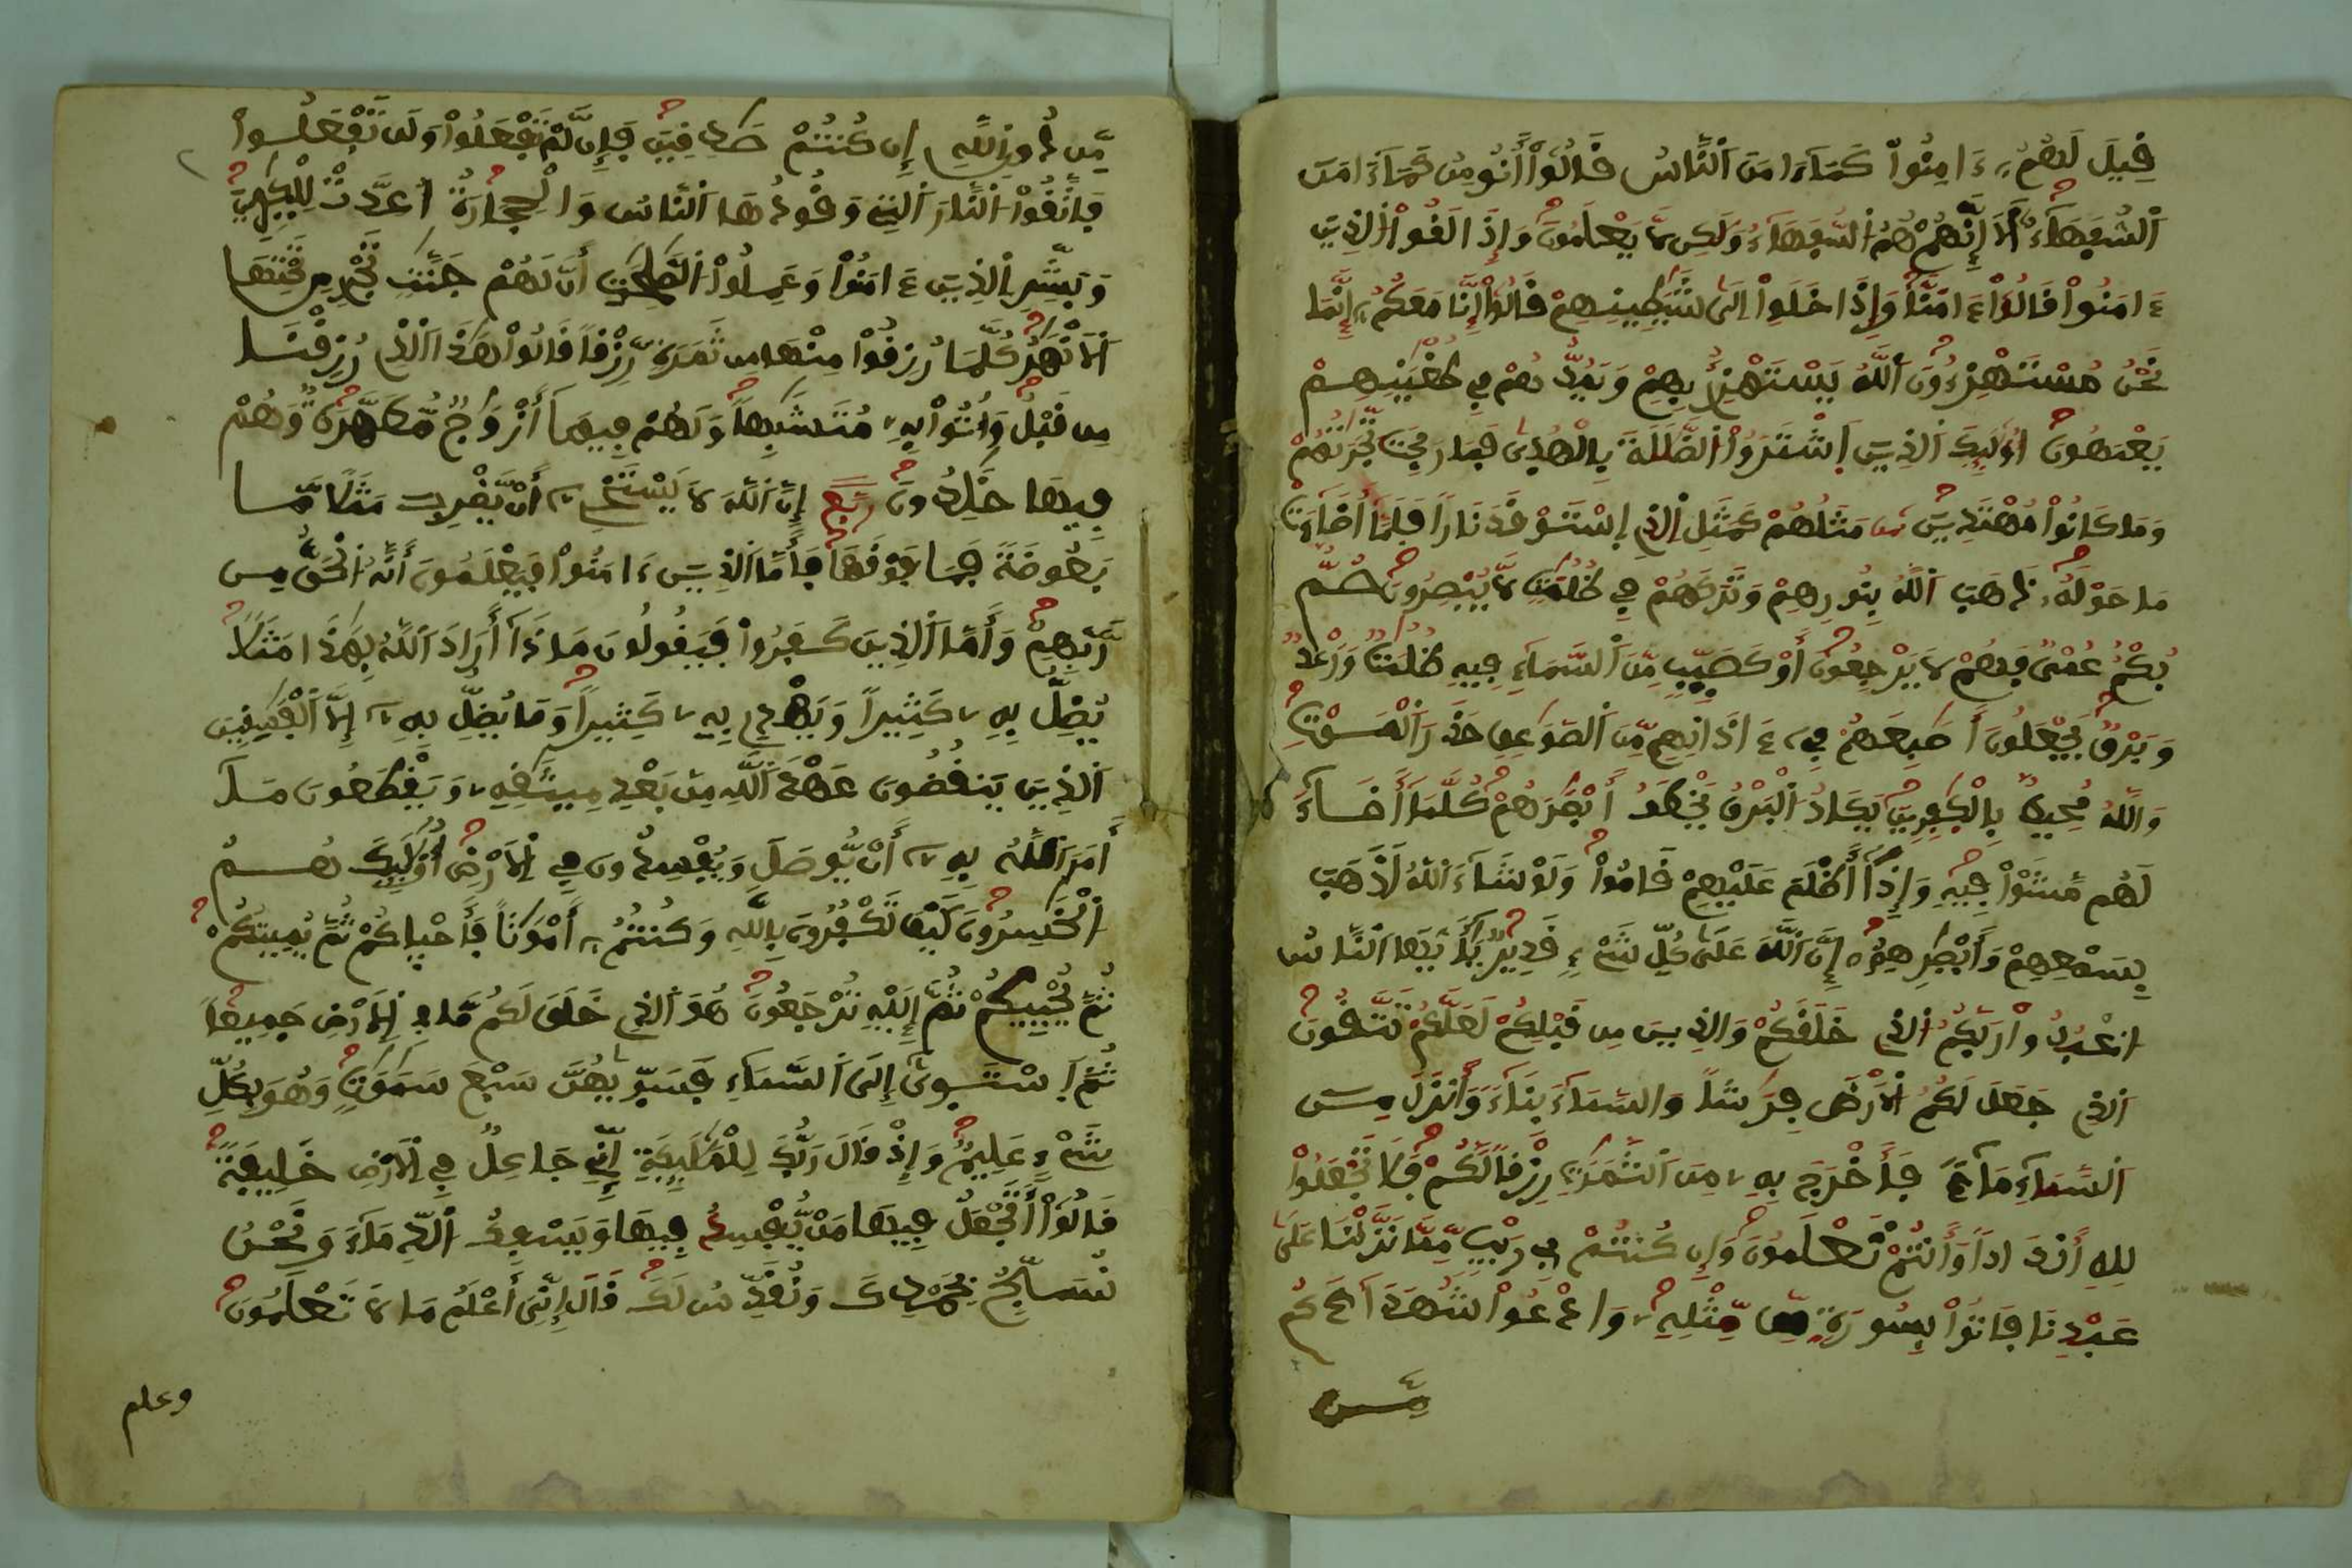 فِيلَ لَهُمُۥٓ ءَامِنُواْ كَمَآ ءَامَنَ اَلنَّاسُ قَالُوٓاْ أَنُومِنُ كَمَآ ءَامَنَ
اَلسُّفَهَآءُ أَلَآ إِنَّهُمْ هُمُ اُلسُّفَهَآءُ وَلَكِن لَّا يَعْلَمُونَ وَإِذَا لَقُواْ اُلذِينَ
ءَامَنُواْ قَالُوٓاْ ءَامَنَّا وَإِذَا خَلَوِاْ اِلَىٰ شَيَٰطِينِهِمْ قَالُوٓاْ إِنَّا مَعَكُمُۥٓ إِنَّمَا
نَحْنُ مُسْتَهْزِءُونَ اَللَّهُ يَسْتَهْزِئُ بِهِمْ وَيَمُدُّهُمْ فِي طُغْيَٰنِهِمْ
يَعْمَهُونَ أُوْلَٰٓئِكَ اَلذِينَ اَشْتَرَوُاْ اُلضَّلَٰلَةَ بِالْهُدَىٰ فَمَا رَبِحَت تِّجَٰرَتُهُمْ
وَمَا كَانُواْ مُهْتَدِينَ مَثَلُهُمْ كَمَثَلِ اِلذِي اِسْتَوْقَدَ نَاراً فَلَمَّآ أَضَآءَتْ
مَا حَوْلَهُۥ ذَهَبَ اَللَّهُ بِنُورِهِمْ وَتَرَكَهُمْ فِي ظُلُمَٰتٍ لَّا يُبْصِرُونَ صُمٌّ
بُكْمٌ عُمْيٌ فَهُمْ لَا يَرْجِعُونَ أَوْ كَصَيِّبٍ مِّنَ اَلسَّمَآءِ فِيهِ ظُلُمَٰتٌ وَرَعْدٌ
وَبَرْقٌ يَجْعَلُونَ أَصَٰبِعَهُمْ فِيٓ ءَاذَانِهِم مِّنَ اَلصَّوَٰعِقِ حَذَرَ اَلْمَوْتِ
وَاللَّهُ مُحِيطٌ بِالْكَٰفِرِينَ يَكَادُ اُلْبَرْقُ يَخْطَفُ أَبْصَٰرَهُمْ كُلَّمَآ أَضَآءَ
لَهُم مَّشَوْاْ فِيهِ وَإِذَآ أَظْلَمَ عَلَيْهِمْ قَامُواْ وَلَوْ شَآءَ اَللَّهُ لَذَهَبَ
بِسَمْعِهِمْ وَأَبْصَٰرِهِمُۥٓ إِنَّ اَللَّهَ عَلَىٰ كُلِّ شَيْءٍ قَدِيرٌ يَٰٓأَيُّهَا اَلنَّاسُ
اُعْبُدُواْ رَبَّكُمُ اُلذِي خَلَقَكُمْ وَالذِينَ مِن قَبْلِكُمْ لَعَلَّكُمْ تَتَّقُونَ
اَلذِي جَعَلَ لَكُمُ اُلْأَرْضَ فِرَٰشاً وَالسَّمَآءَ بِنَآءً وَأَنزَلَ مِنَ
اَلسَّمَآءِ مَآءً فَأَخْرَجَ بِهِۦ مِنَ اَلثَّمَرَٰتِ رِزْقاً لَّكُمْ فَلَا تَجْعَلُواْ
لِلهِ أَندَاداً وَأَنتُمْ تَعْلَمُونَ وَإِن كُنتُمْ فِي رَيْبٍ مِّمَّا نَزَّلْنَا عَلَىٰ
عَبْدِنَا فَاتُواْ بِسُورَةٍ مِّن مِّثْلِهِۦ وَادْعُواْ شُهَدَآءَكُم
مِّن
مِّن دُونِ اِللَّهِ إِن كُنتُمْ صَٰدِقِينَ فَإِن لَّمْ تَفْعَلُواْ وَلَن تَفْعَلُواْ
فَاتَّقُواْ اُلنَّارَ اَلتِي وَقُودُهَا اَلنَّاسُ وَالْحِجَارَةُ أُعِدَّتْ لِلْكَٰفِرِينَ
وَبَشِّرِ اِلذِينَ ءَامَنُواْ وَعَمِلُواْ اُلصَّٰلِحَٰتِ أَنَّ لَهُمْ جَنَّٰتٍ تَجْرِي مِن تَحْتِهَا
اَلْأَنْهَٰرُ كُلَّمَا رُزِقُواْ مِنْهَا مِن ثَمَرَةٍ رِّزْقاً قَالُواْ هَٰذَا اَلذِي رُزِقْنَا
مِن قَبْلُ وَأُتُواْ بِهِۦ مُتَشَٰبِهاً وَلَهُمْ فِيهَآ أَزْوَٰجٌ مُّطَهَّرَةٌ وَهُمْ
فِيهَا خَٰلِدُونَ رُبُع إِنَّ اَللَّهَ لَا يَسْتَحْيِۦٓ أَنْ يَّضْرِبَ مَثَلًا مَّا
بَعُوضَةً فَمَا فَوْقَهَا فَأَمَّا اَلذِينَ ءَامَنُواْ فَيَعْلَمُونَ أَنَّهُ اُلْحَقُّ مِن
رَّبِّهِمْ وَأَمَّا اَلذِينَ كَفَرُواْ فَيَقُولُونَ مَاذَآ أَرَادَ اَللَّهُ بِهَٰذَا مَثَلًا
يُضِلُّ بِهِۦ كَثِيراً وَيَهْدِي بِهِۦ كَثِيراً وَمَا يُضِلُّ بِهِۦٓ إِلَّا اَلْفَٰسِقِينَ
اَلذِينَ يَنقُضُونَ عَهْدَ اَللَّهِ مِنۢ بَعْدِ مِيثَٰقِهِۦ وَيَقْطَعُونَ مَآ
أَمَرَ اَللَّهُ بِهِۦٓ أَنْ يُّوصَلَ وَيُفْسِدُونَ فِي اِلْأَرْضِ أُوْلَٰٓئِكَ هُمُ
اُلْخَٰسِرُونَ كَيْفَ تَكْفُرُونَ بِاللَّهِ وَكُنتُمُۥٓ أَمْوَٰتاً فَأَحْيَٰكُمْ ثُمَّ يُمِيتُكُمْ
ثُمَّ يُحْيِيكُمْ ثُمَّ إِلَيْهِ تُرْجَعُونَ هُوَ اَلذِي خَلَقَ لَكُم مَّا فِي اِلْأَرْضِ جَمِيعاً
ثُمَّ اَسْتَوَىٰٓ إِلَى اَلسَّمَآءِ فَسَوَّيٰهُنَّ سَبْعَ سَمَٰوَٰتٍ وَهُوَ بِكُلِّ
شَيْءٍ عَلِيمٌ وَإِذْ قَالَ رَبُّكَ لِلْمَلَٰٓئِكَةِ إِنِّي جَاعِلٌ فِي اِلْأَرْضِ خَلِيفَةً
قَالُوٓاْ أَتَجْعَلُ فِيهَا مَنْ يُّفْسِدُ فِيهَا وَيَسْفِكُ اُلدِّمَآءَ وَنَحْنُ
نُسَبِّحُ بِحَمْدِكَ وَنُقَدِّسُ لَكَ قَالَ إِنِّيَ أَعْلَمُ مَا لَا تَعْلَمُونَ
وعلم